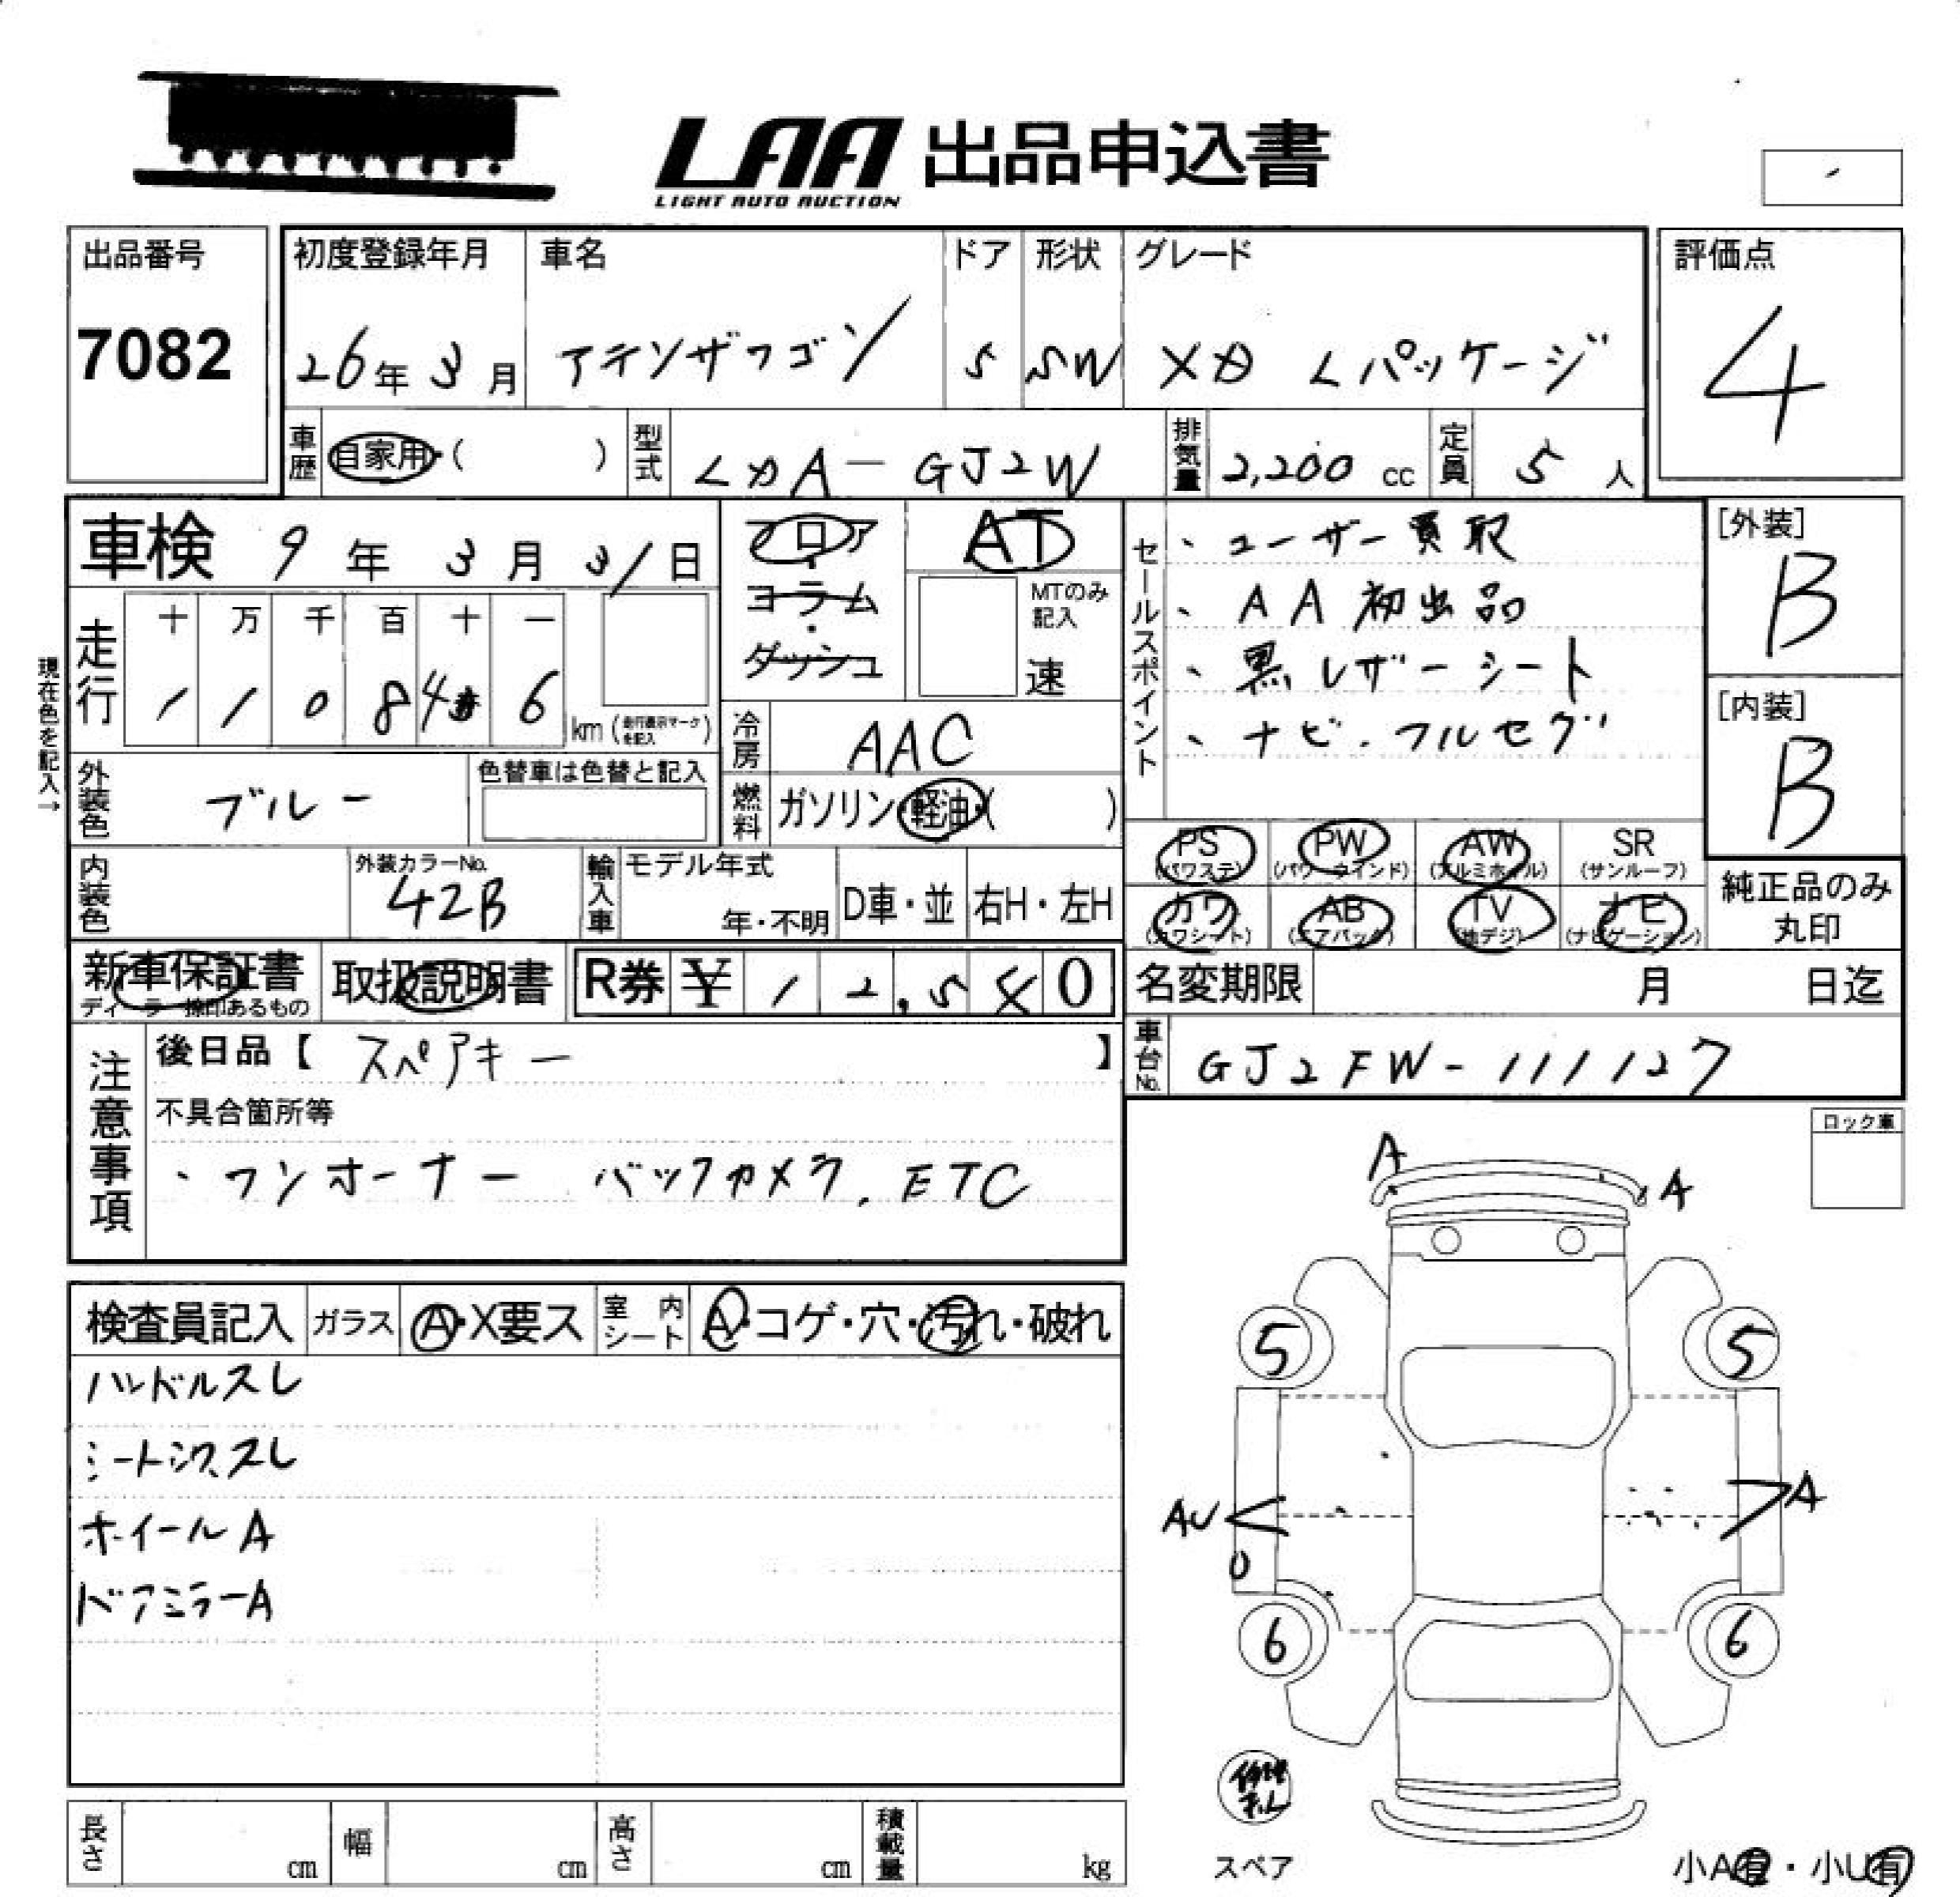 LAA 出品申込書
LIGHT AUTO AUCTION
出品番号
7082
初度登録年月
26年3月
車名
アテンザワゴン
ドア
5
形状
SW
グレード
XD Lパッケージ
評価点
4
車歴 自家用・( )
型式 LDA-GJ2W
排気量 2,200 cc
定員 5 人
車検 9年3月31日
フロア・コラム・ダッシュ
AT
MTのみ記入
速
セールスポイント
、ユーザー買取
、AA初出品
、黒レザーシート
、ナビ.フルセグ
[外装]
B
[内装]
B
現在色を記入→
走行
十 万 千 百 十 一
1 1 0 8 4 6 km (走行表示マークを記入)
冷房 AAC
外装色 ブルー
色替車は色替と記入
燃料 ガソリン・軽油・( )
内装色
外装カラーNo.
42B
輸入車
モデル年式
年・不明
D車・並
右H・左H
PS (パワステ)
PW (パワーウインド)
AW (アルミホイル)
SR (サンルーフ)
カワ (カワシート)
AB (エアバック)
TV (地デジ)
ナビ (ナビゲーション)
純正品のみ丸印
新車保証書
ディーラー捺印あるもの
取扱説明書
R券 ¥ 1 2,5 0
名変期限 月 日迄
車台No. GJ2FW-111127
注意事項
後日品【 スペアキー 】
不具合箇所等
・ワンオーナー バックカメラ.ETC
ロック車
検査員記入
ガラス A・X要ス
室内シート A・コゲ・穴・汚れ・破れ
ハンドルスレ
シートシワ、スレ
ホイールA
ドアミラーA
A
A
5
5
AU
U
A
6
6
修理キット
スペア
小A有・小U有
長さ cm
幅 cm
高さ cm
積載量 kg